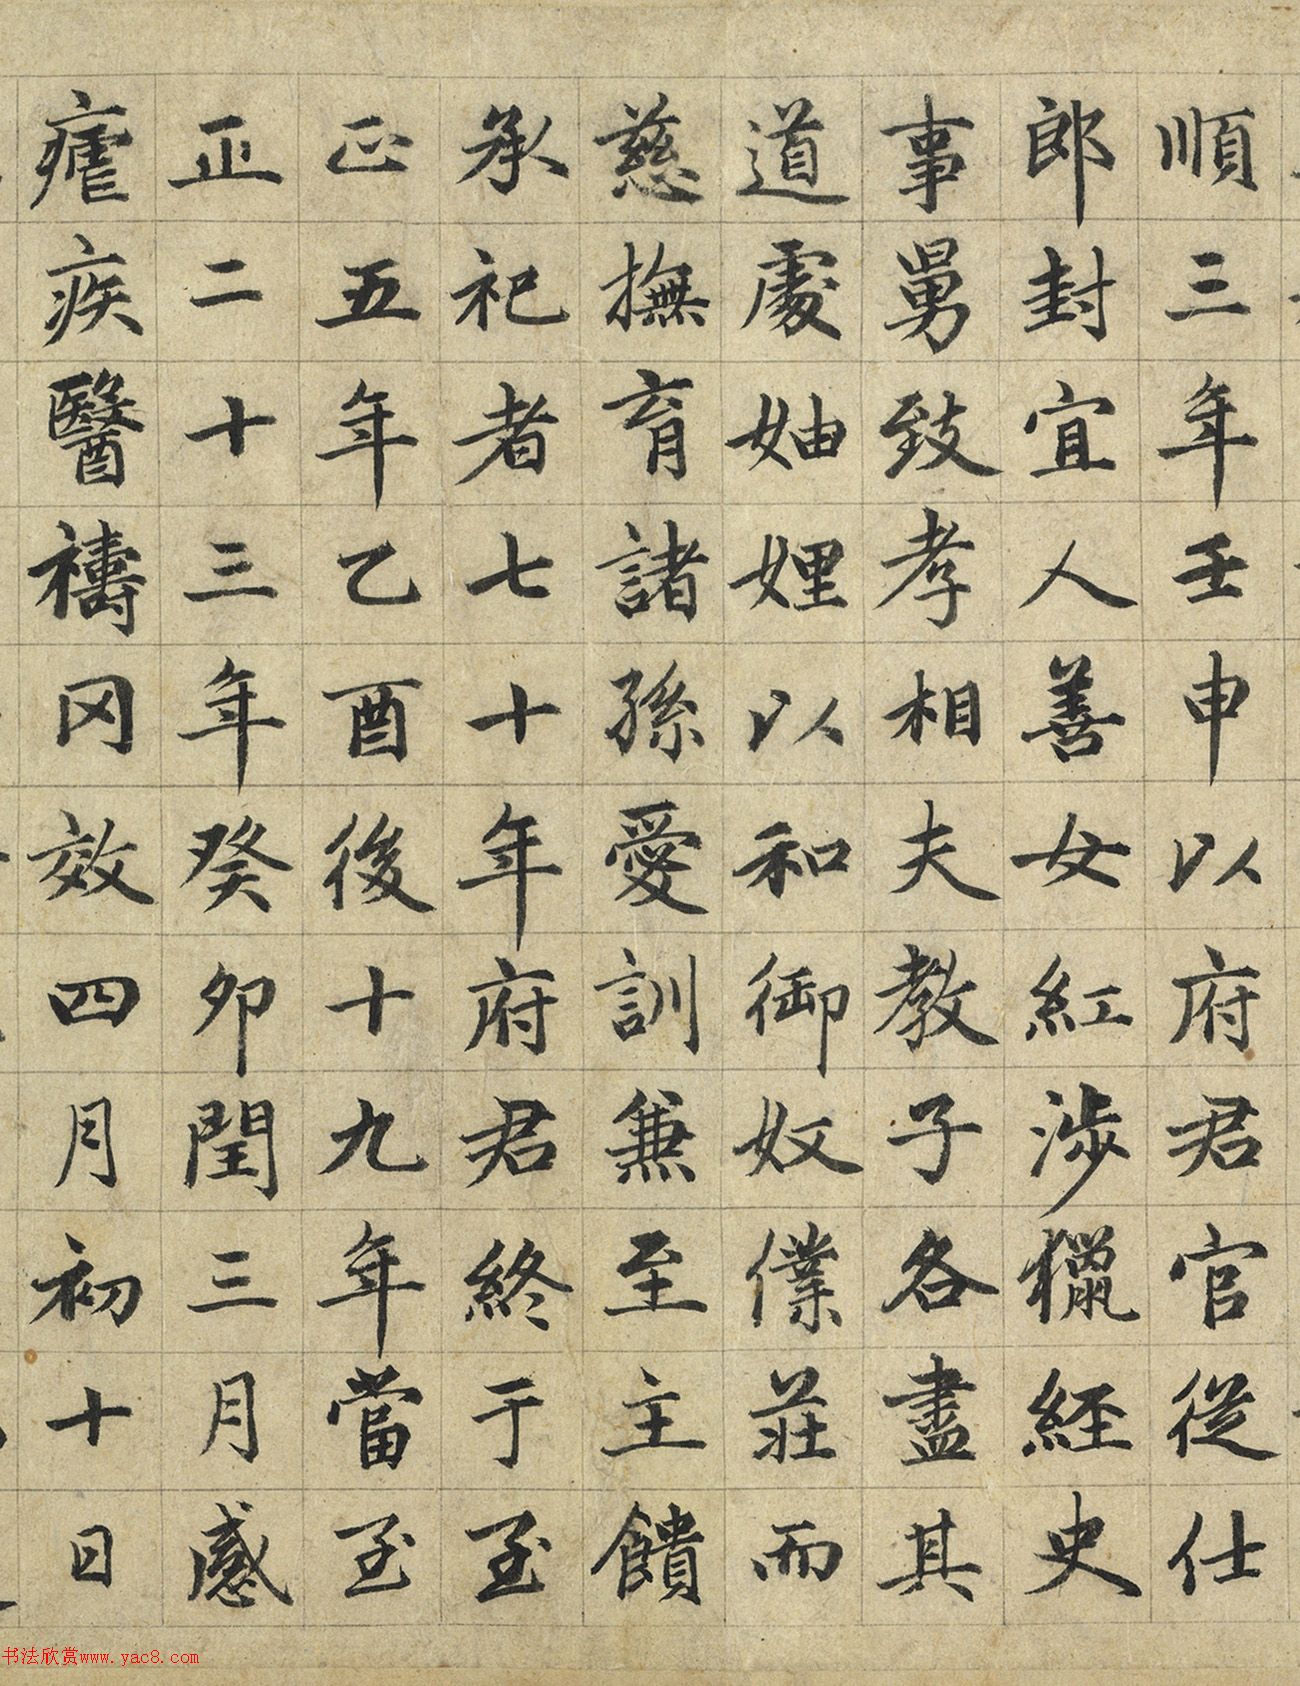 順三年壬申以府君官從仕
郎封宜人善女紅涉獵經史
事舅致孝相夫教子各盡其
道處妯娌以和御奴僕莊而
慈撫育諸孫愛訓兼至主饋
承祀者七十年府君終于至
正五年乙酉後十九年當至
正二十三年癸卯閏三月感
瘧疾醫禱罔效四月初十日
书法欣赏www.yac8.com